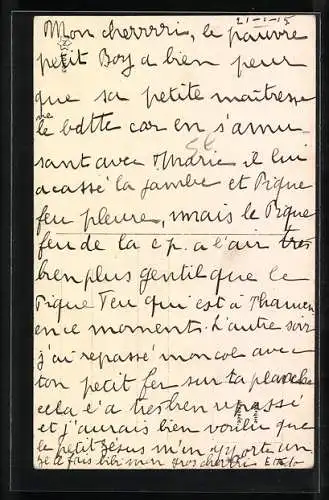 21-1-15
Mon cherrrri, le pauvre
petit Boy a bien peur
que sa petite maitresse
ne
le batte car en s'amu-
sant avec Marie il lui
a cassé la jambe et Pique
feu pleure, mais le Pique
feu de la c p. a l'air très
bien plus gentil que le
Pique Feu qui est à
en ce moment. L'autre soir
j'ai repassé mon col avec
ton petit fer sur ta planche
cela l'a très bien repassé
et j'aurais bien voulu que
le petit Jésus m'en apporte un.
Je te fais bibi mon gros cherrri